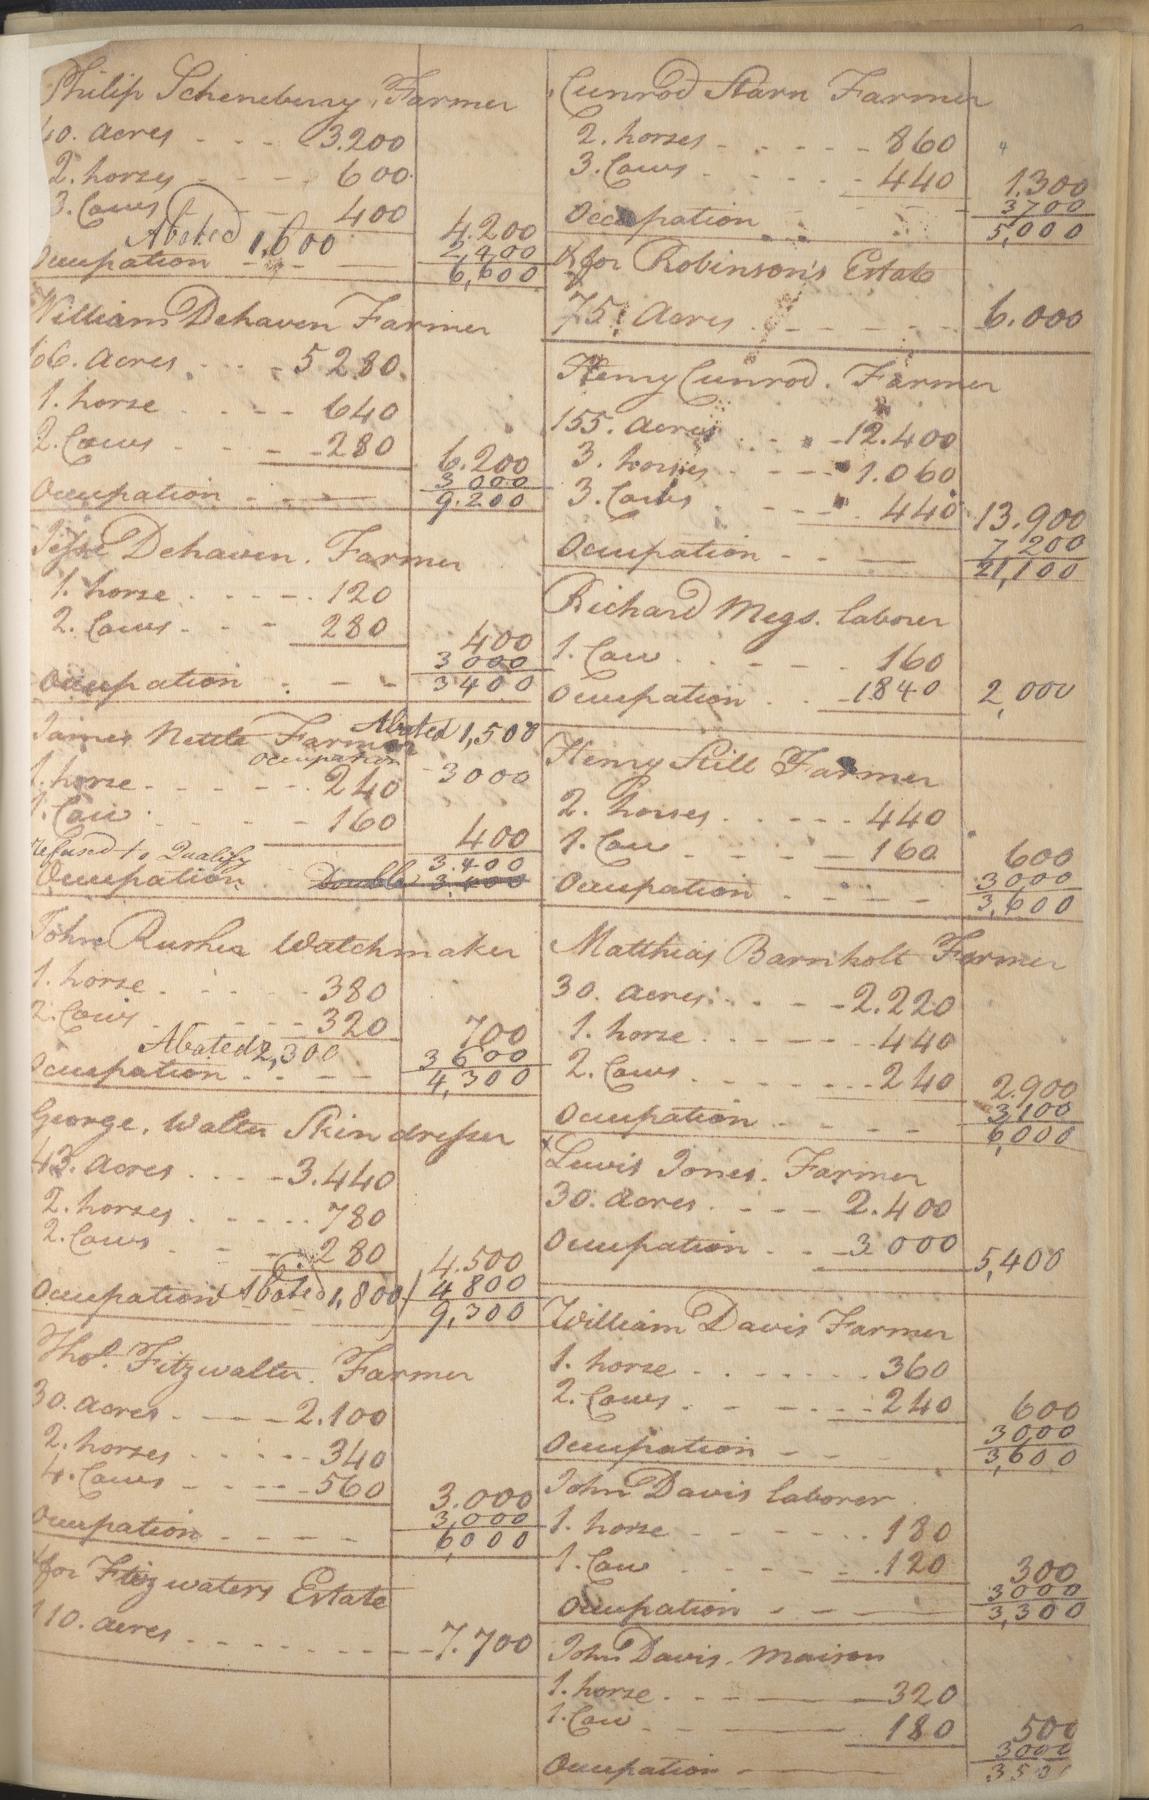 Philip Scheneburry, Farmer
40. acres - - - 3.200
2. horses - - - 600
3. Cows - - 400 4.200
Abated 1,600 2,400
Occupation - - - 6,600
William Dehaven Farmer
66. acres. - - - 5280.
1. horse - - - 640
2. Cows - - - 280 6.200
3000
Occupation - - - 9.200
Dehaven. Farmer
1. horse - - - 120
2. Cows - - - 280 400
3000
Occupation - - - 3400
James Nettle Farmer Abated 1,500
Occupation 3000
1. horse - - - 240
1. Cow - - - 160 400
refused to Qualify 3.400
Occupation Double 3.400
John Rusher Watchmaker
1. horse - - - 380
2. Cows - - - 320 700
Abated 2,300 3600
Occupation - - - 4,300
George. Walter Skin dresser
43. acres - - - 3.440
2. horses - - - 780
2. Cows - - - 280 4.500
Occupation Abated 1,800 4800
9,300
Thos. Fitzwalter. Farmer
30. acres - - - 2.100
2. horses - - - 340
4. Cows - - - 560 3.000
3,000
Occupation - - - 6000
for Fitzwaters Estate
110. acres - - - 7.700
Cunrod Starn Farmer
2. horses - - - 860
3. Cows - - - 440 1.300
3700
Occupation - - - 5,000
& for Robinson's Estate
75. Acres - - - 6.000
Henry Cunrod. Farmer
155. acres - - - 12.400
3. horses - - - 1.060
3. Cows - - - 440 13.900
7200
Occupation - - - 21,100
Richard Megs. laborer
1. Cow - - - 160
Occupation - - - 1840 2,000
Henry Still Farmer
2. horses - - - 440
1. Cow - - - 160 600
3000
Occupation - - - 3,600
Matthias Barnholt Farmer
30. acres - - - 2.220
1. horse - - - 440
2. Cows - - - 240 2.900
3,100
Occupation - - - 6,000
x Lewis Jones. Farmer
30. acres - - - 2.400
Occupation - - - 3000 5,400
William Davis Farmer
1. horse - - - 360
2. Cows - - - 240 600
3000
Occupation - - - 3,600
John Davis laborer
1. horse - - - 180
1. Cow - - - 120 300
3000
Occupation - - - 3,300
John Davis. Maison
1. horse - - - 320
1. Cow - - - 180 500
3000
Occupation - - - 3500